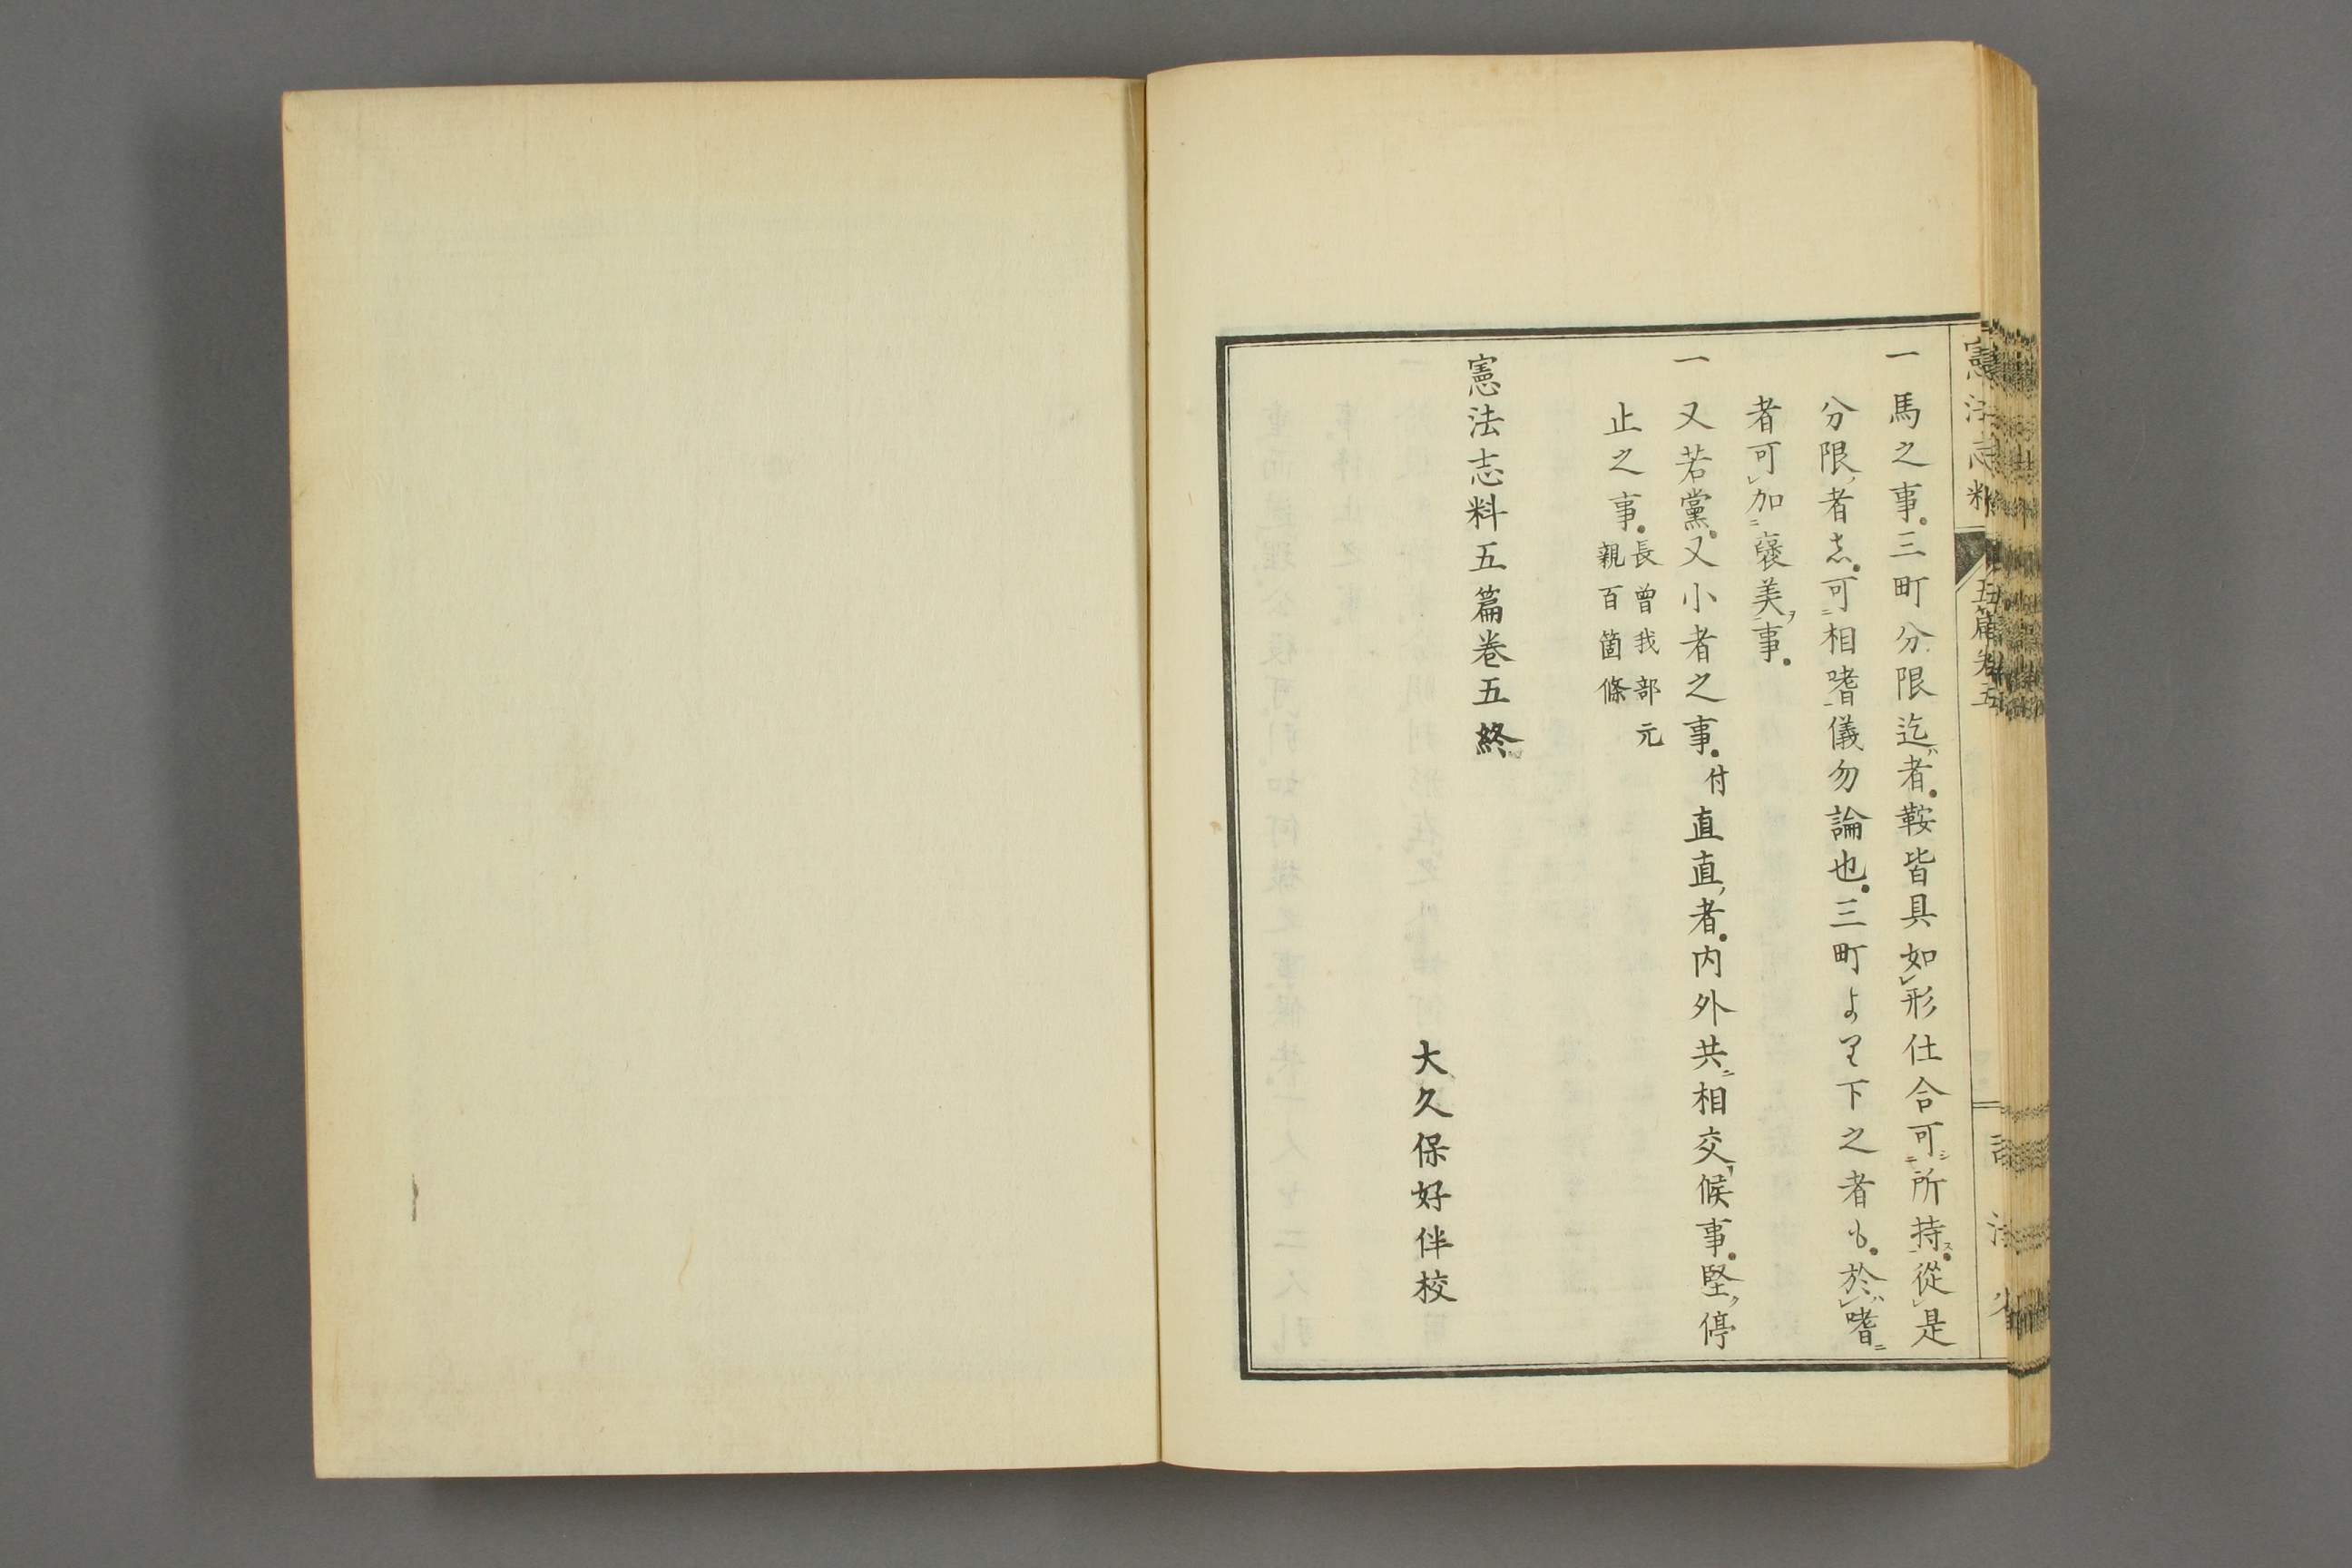 憲法志料 五篇卷五
一馬之事。三町分限迄ハ者。鞍皆具如レ形仕合可ニシ所持一ス。從レ是
分限ノ者志。可ニ相嗜一儀勿論也。三町より下之者も。於レハ嗜ニ
者可レ加ニ褒美一ヲ事。
一又若黨。又小者之事。付直直ノ者。內外共ニ相交ヿ候事。堅ク停
止之事。長曾我部元親百箇條
憲法志料五篇卷五終
大久保好伴校